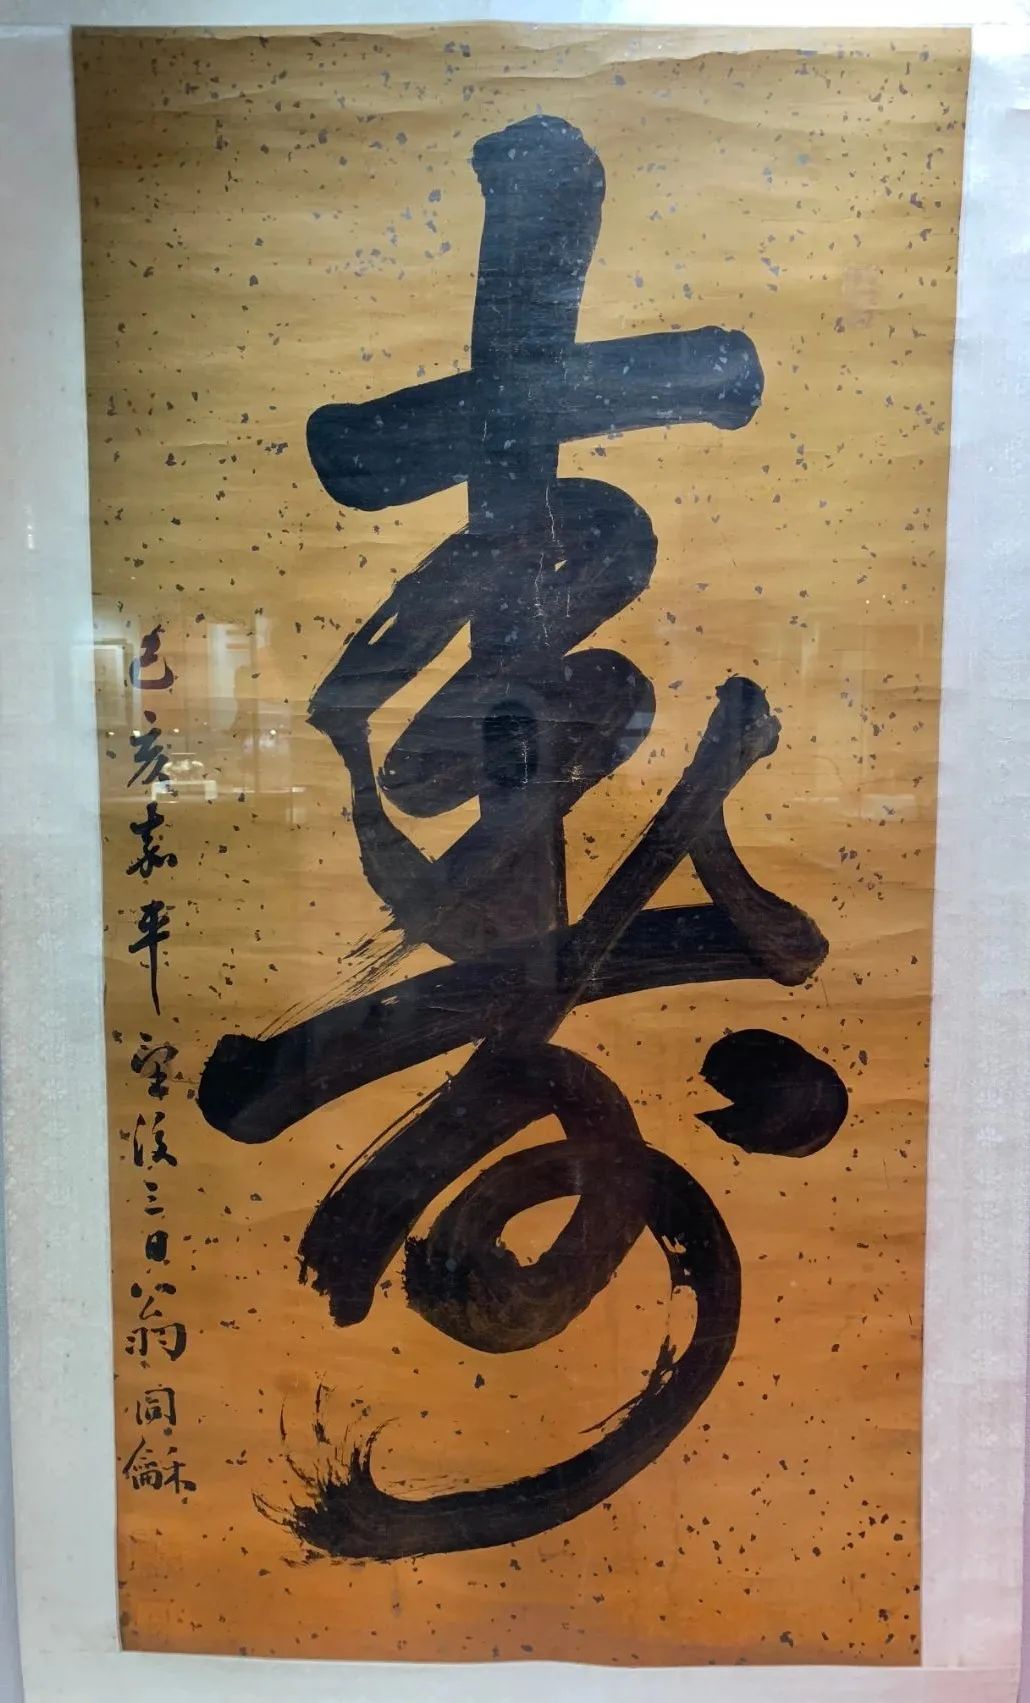 壽
己亥嘉平望後三日翁同龢